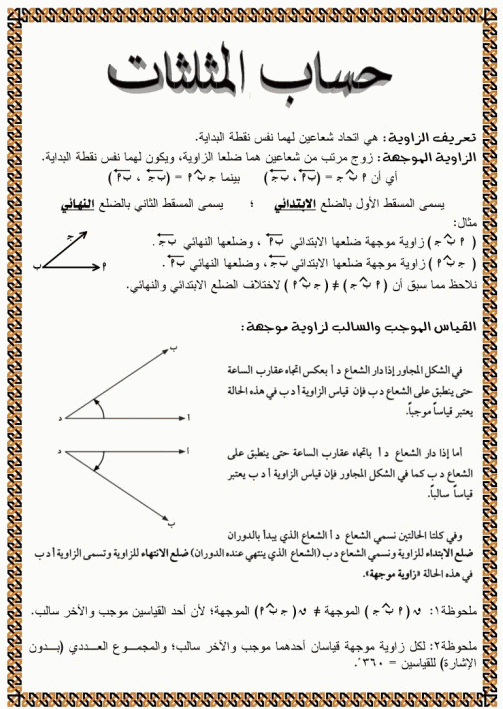 حساب المثلثات
تعريف الزاوية: هي اتحاد شعاعين لهما نفس نقطة البداية.
الزاوية الموجهة: زوج مرتب من شعاعين هما ضلعا الزاوية، ويكون لهما نفس نقطة البداية.
أي أن م ب ج = (ب م ، ب ج) بينما ج ب م = (ب ج ، ب م)
يسمى المسقط الأول بالضلع الابتدائي ؛ يسمى المسقط الثاني بالضلع النهائي
مثال:
( م ب ج ) زاوية موجهة ضلعها الابتدائي ب م ، وضلعها النهائي ب ج .
( ج ب م ) زاوية موجهة ضلعها الابتدائي ب ج ، وضلعها النهائي ب م .
ج
ب
م
نلاحظ مما سبق أن ( م ب ج ) ≠ ( ج ب م ) لاختلاف الضلع الابتدائي والنهائي.
القياس الموجب والسالب لزاوية موجهة:
في الشكل المجاور إذا دار الشعاع د أ بعكس اتجاه عقارب الساعة
حتى ينطبق على الشعاع د ب فإن قياس الزاوية أ د ب في هذه الحالة
يعتبر قياساً موجباً.
ب
د
أ
أما إذا دار الشعاع د أ باتجاه عقارب الساعة حتى ينطبق على
الشعاع د ب كما في الشكل المجاور فإن قياس الزاوية أ د ب يعتبر
قياساً سالباً.
د
أ
ب
وفي كلتا الحالتين نسمي الشعاع د أ الشعاع الذي يبدأ بالدوران
ضلع الابتداء للزاوية ونسمي الشعاع د ب (الشعاع الذي ينتهي عنده الدوران) ضلع الانتهاء للزاوية وتسمى الزاوية أ د ب
في هذه الحالة «زاوية موجهة».
ملحوظة١: ن ( م ب ج ) الموجهة ≠ ن ( ج ب م ) الموجهة؛ لأن أحد القياسين موجب والآخر سالب.
ملحوظة٢: لكل زاوية موجهة قياسان أحدهما موجب والآخر سالب؛ والمجمـــوع العـــددي (بـــدون
الإشارة) للقياسين = ٣٦٠°.